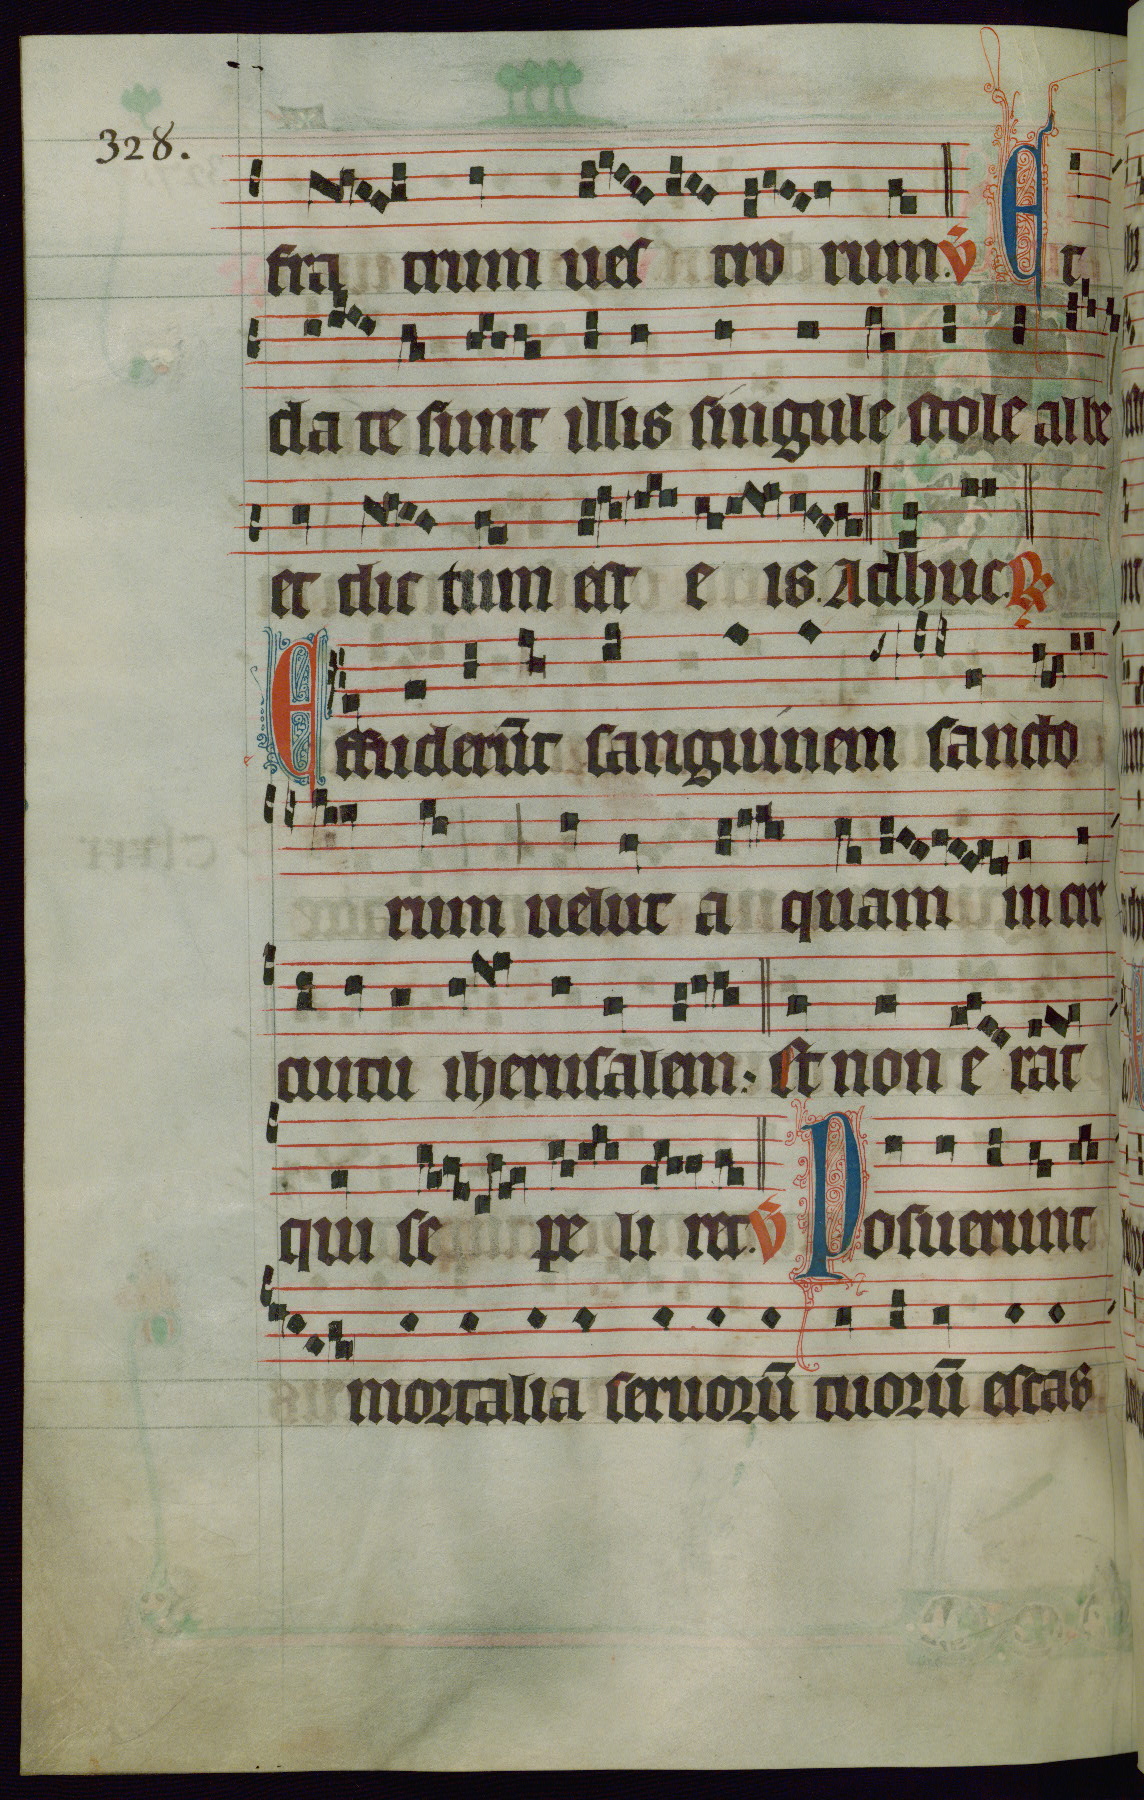 328.
fra trum ues tro rum. v̄ Et
da te sunt illis singule stole albe
et dic tum est e is. Adhuc. R
Effuderūt sanguinem sancto
rum uelut a quam in cir
cuitu iherusalem: Et non e rat
qui se pe li ret. v̄ Posuerunt
mortalia seruorū tuorū escas